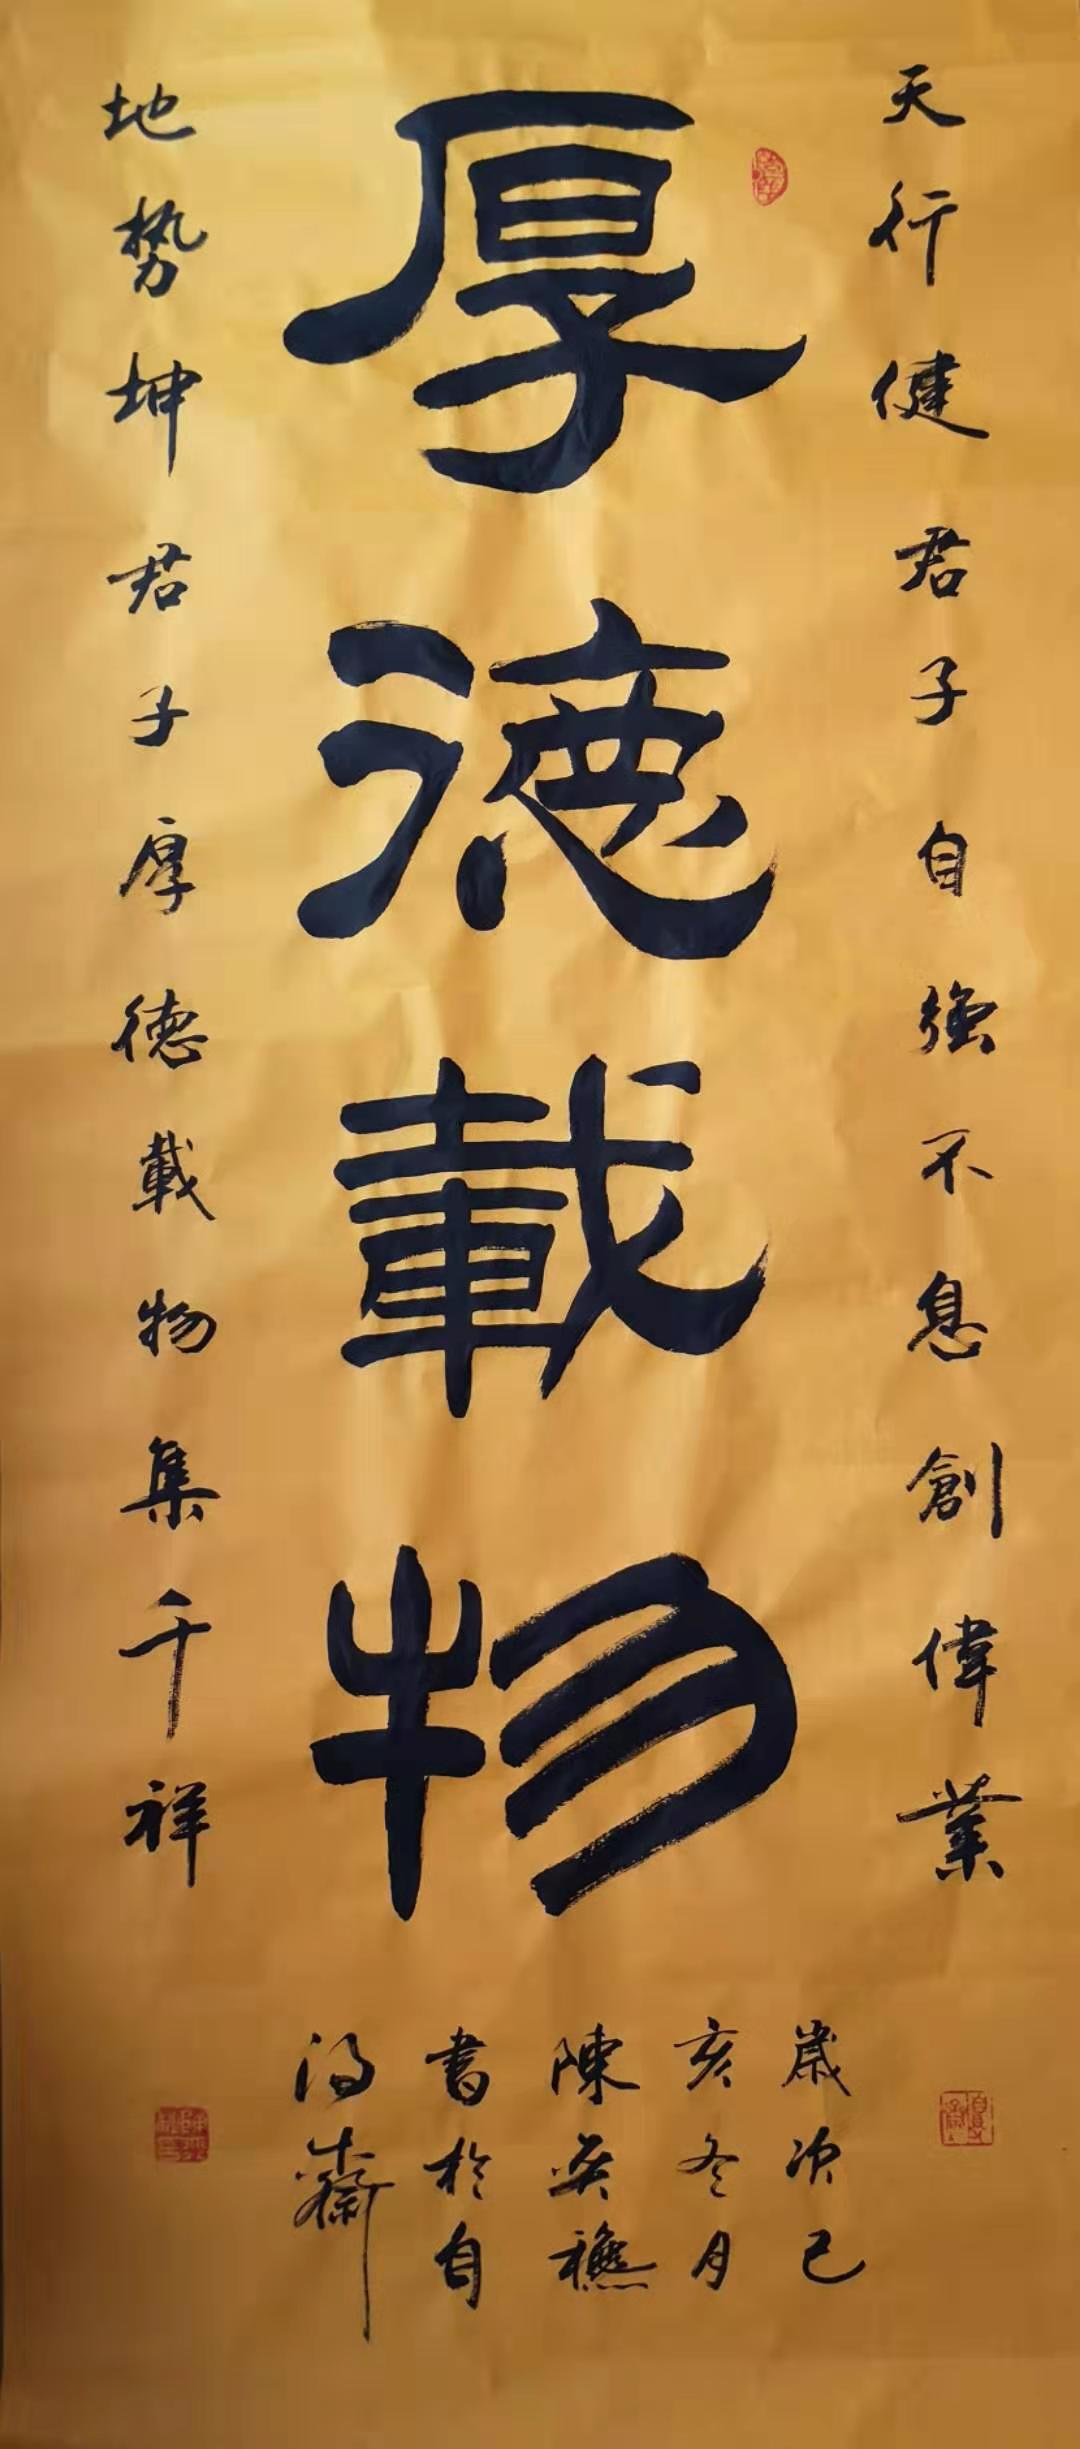 天行健君子自強不息創偉業
厚德載物
地势坤君子厚德載物集千祥
歲次己
亥冬月
陳
書於自
得齋